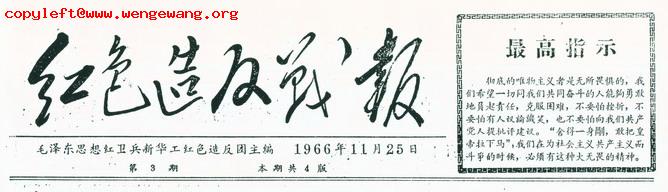 copyleft@www.wengewang.org
红色造反战报
毛泽东思想红卫兵新华工红色造反团主编 1966年11月25日
第3期 本期共4版
最高指示
彻底的唯物主义者是无所畏惧的，我
们希望一切同我们共同奋斗的人能夠勇敢
地員起责任，克服困难，不要怕挫折，不
要怕有人议論譏笑，也不要怕向我們共产
党人提批评建议。“舍得一身剮，敢把皇
帝拉下马”，我們在为社会主义共产主义而
斗爭的时候，必須有这种大无畏的精神。